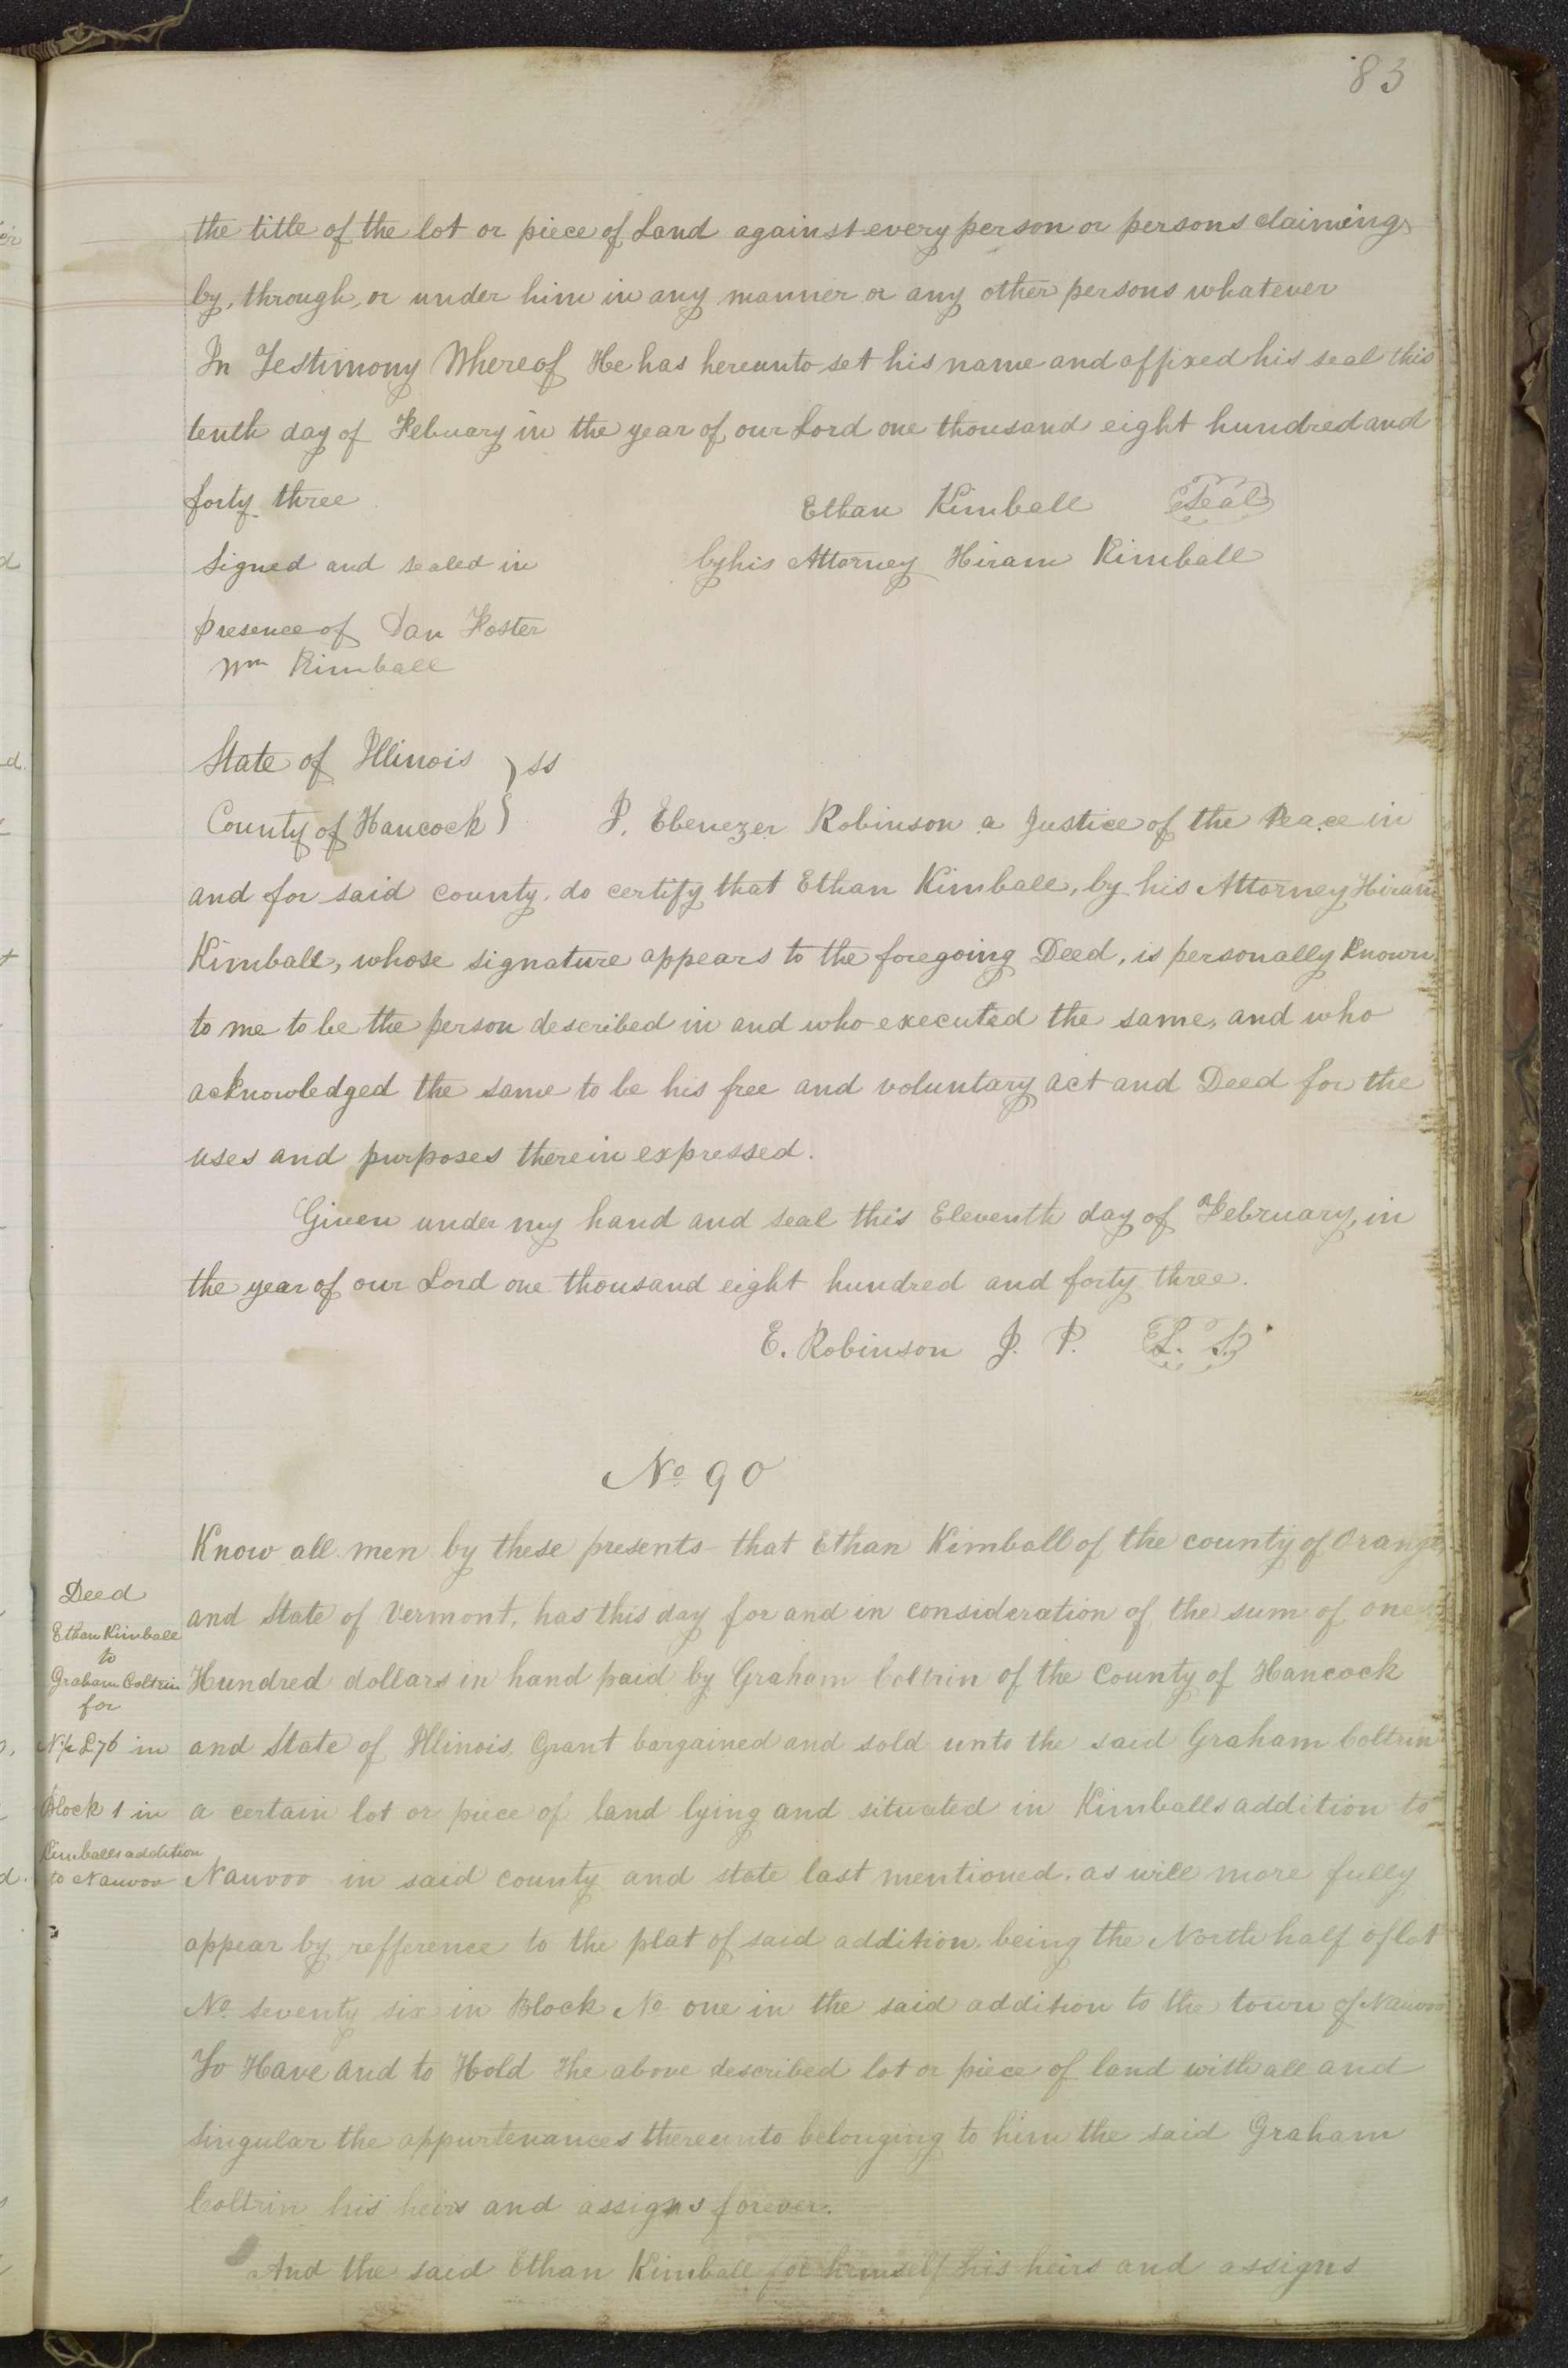 83
the title of the lot or piece of Land against every person or persons claiming
by, through, or under him in any manner or any other persons whatever
In Testimony Whereof He has hereunto set his name and affixed his seal this
tenth day of Febuary in the year of our Lord one thousand eight hundred and
forty three
Ethan Kimball Seal
Signed and sealed in
by his Attorney Hiram Kimball
presence of Dan Foster
Wm Kimball
State of Illinois } ss
County of Hancock } I, Ebenezer Robinson a Justice of the Peace in
and for said county, do certify that Ethan Kimball, by his Attorney Hiram
Kimball, whose signature appears to the foregoing Deed, is personally known
to me to be the person described in and who executed the same, and who
acknowledged the same to be his free and voluntary act and Deed for the
uses and purposes therein expressed.
Given under my hand and seal this Eleventh day of February, in
the year of our Lord one thousand eight hundred and forty three.
E. Robinson J. P. L. S.
No 90
Know all men by these presents that Ethan Kimball of the county of Orange
and State of Vermont, has this day for and in consideration of the sum of one
Hundred dollars in hand paid by Graham Coltrin of the County of Hancock
and State of Illinois, Grant bargained and sold unto the said Graham Coltrin
a certain lot or piece of land lying and situated in Kimballs addition to
Nauvoo in said county and state last mentioned, as will more fully
appear by refference to the plat of said addition, being the North half of lot
No seventy six in Block No one in the said addition to the town of Nauvoo
To Have and to Hold The above described lot or piece of land with all and
singular the appurtenances thereunto belonging to him the said Graham
Coltrin his heirs and assigns forever.
And the said Ethan Kimball for himself his heirs and assigns
Deed
Ethan Kimball
to
Graham Coltrin
for
N½ L76 in
Block 1 in
Kimballs addition
to Nauvoo